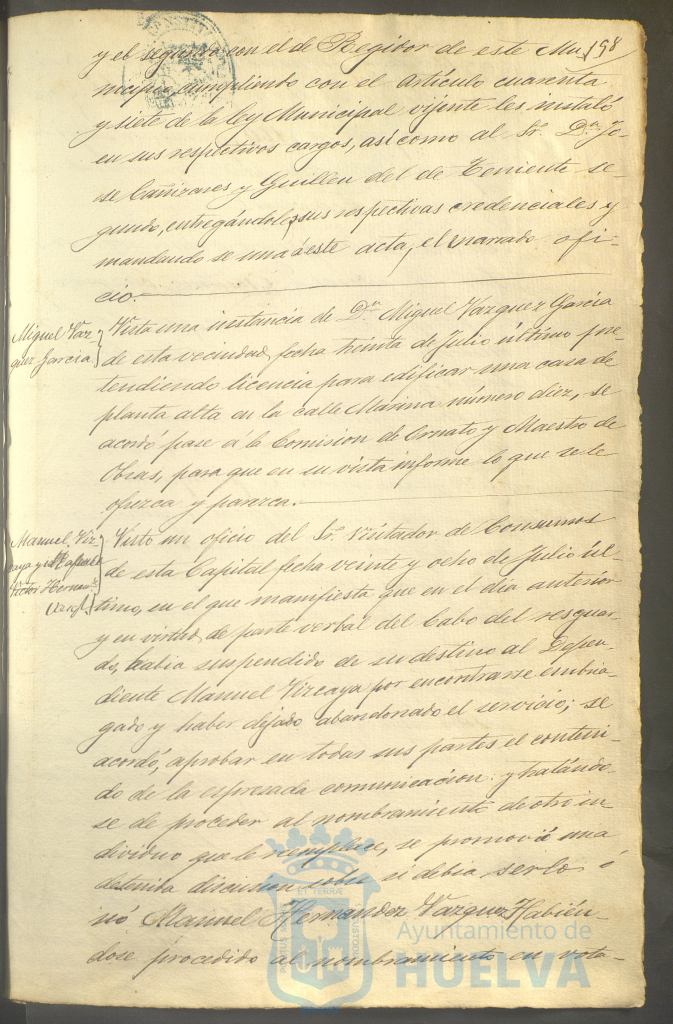 198
y el segundo con el de Regidor de este Mu-
nicipio, cumpliendo con el Artículo cuarenta
y siete de la ley Municipal vijente les instaló
en sus respectivos cargos, así como al Sr. Dn. Jo-
se Cañizares y Guillen del de Teniente se-
gundo, entregándoles sus respectivas credenciales y
mandando se una á este acta, el narrado ofi-
cio.
Miguel Vaz-
quez Garcia
Vista una instancia de Dn. Miguel Vazquez Garcia
de esta vecindad, fecha treinta de Julio último pre-
tendiendo licencia para edificar una casa de
planta alta en la calle Marina número diez, se
acordó pase á la Comision de Ornato y Maestro de
Obras, para que en su vista informe lo que se le
ofrezca y parezca.
Manuel Viz-
caya y
Victor Hernan
Visto un oficio del Sr. Visitador de Consumos
de esta Capital fecha veinte y ocho de Julio úl-
timo, en el que manifiesta que en el dia anterior
y en virtud de parte verbal del Cabo del resguar-
do, habia suspendido de su destino al Depen-
diente Manuel Vizcaya por encontrarse embria-
gado y haber dejado abandonado el servicio; se
acordó, aprobar en todas sus partes el conteni-
do de la espresada comunicacion: y tratándo-
se de proceder al nombramiento de otro in
dividuo que le remplace, se promovió una
detenida discusion sobre si debia serlo ó
nó Manuel Hernandez Vazquez Habién-
dose procedido al nombramiento en vota-
Ayuntamiento de
HUELVA